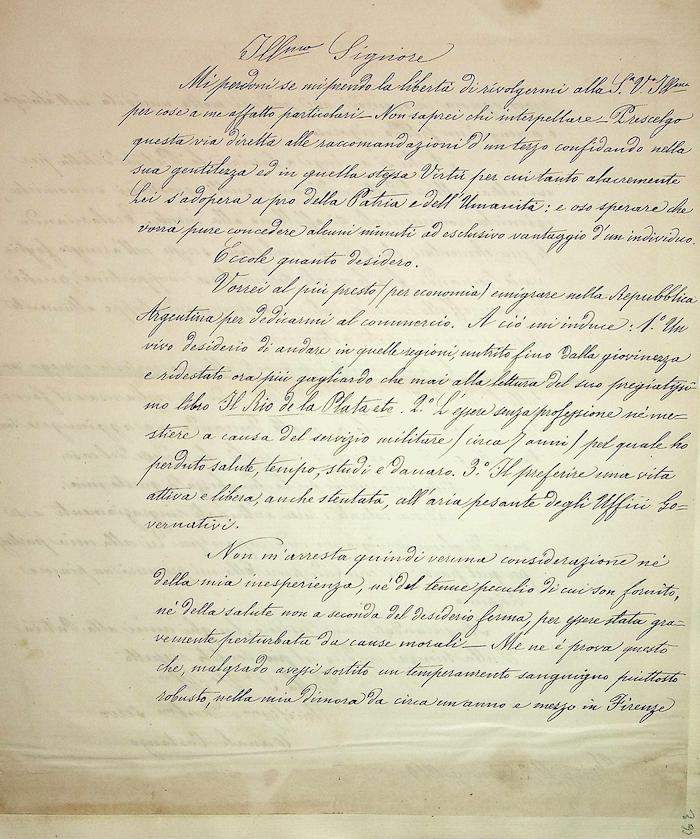 Ill.mo Signore
Mi perdoni se mi prendo la libertà di rivolgermi alla S.a V.a Ill.ma
per cose a me affatto particolari — Non saprei chi interpellare — Prescelgo
questa via diretta alle raccomandazioni d'un terzo confidando nella
sua gentilezza ed in quella stessa Virtù per cui tanto alacremente
Lei s'adopera a pro della Patria e dell'Umanità: e oso sperare che
vorrà pure concedere alcuni minuti ad esclusivo vantaggio d'un individuo.
Eccole quanto desidero.
Vorrei al più presto (per economia) emigrare nella Repubblica
Argentina per dedicarmi al commercio. A ciò mi induce: 1.° Un
vivo desiderio di andare in quelle regioni, nutrito fino dalla giovinezza
e ridestato ora più gagliardo che mai alla lettura del suo pregiatissi=
mo libro Il Rio de la Plata etc. 2.° L'essere senza professione nè me=
stiere a causa del servizio militare (circa 7 anni) pel quale ho
perduto salute, tempo, studi e danaro. 3.° Il preferire una vita
attiva e libera, anche stentata, all'aria pesante degli Uffici Go=
vernativi.
Non m'arresta quindi veruna considerazione nè
della mia inesperienza, nè del tenue peculio di cui son fornito,
nè della salute non a seconda del desiderio ferma, per essere stata gra=
vemente perturbata da cause morali — Me ne è prova questo
che, malgrado avessi sortito un temperamento sanguigno piuttosto
robusto, nella mia dimora da circa un anno e mezzo in Firenze